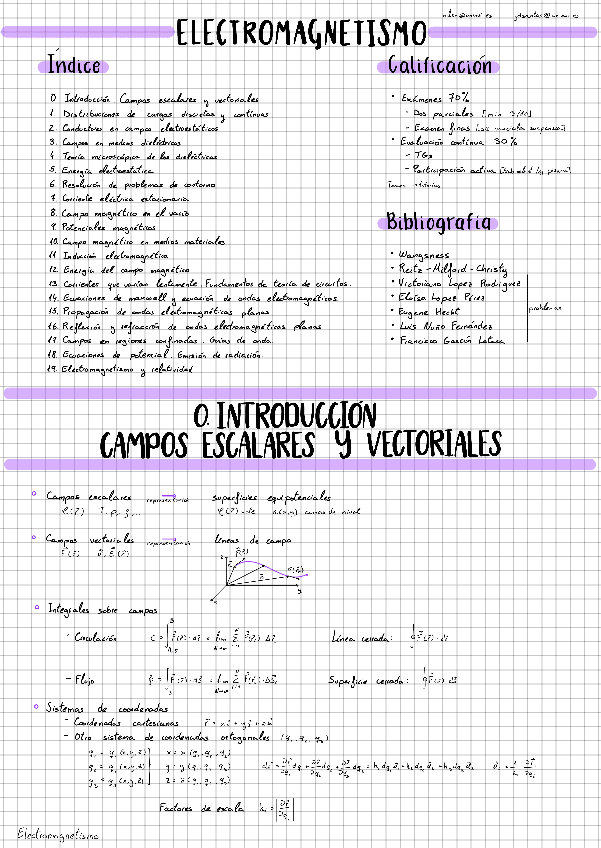 ELECTROMAGNETISMO
Índice
0. Introducción Campos escalares y vectoriales
1. Distribuciones de cargas discretas y continuas
2. Conductores en campos electrostáticos
3. Campos en medios dieléctricos
4. Teoría microscópica de los dieléctricos
5. Energía electrostática
6. Resolución de problemas de contorno
7. Corriente eléctrica estacionaria
8. Campo magnético en el vacío
9. Potenciales magnéticos
10. Campo magnético en medios materiales
11. Inducción electromagnética
12. Energía del campo magnético
13. Corrientes que varían lentamente. Fundamentos de teoría de circuitos.
14. Ecuaciones de maxwell y ecuación de ondas electromagnéticas
15. Propagación de ondas electromagnéticas planas
16. Reflexión y refracción de ondas electromagnéticas planas
17. Campos en regiones confinadas. Guías de onda.
18. Ecuaciones de potencial. Emisión de radiación.
19. Electromagnetismo y relatividad
Calificación
• Exámenes 70%
- Dos parciales [min 3/10]
- Examen final
• Evaluación continua 30%
- TGs
- Participación activa
Bibliografía
• Wangsness
• Reitz - Milford - Christy
• Victoriano Lopez Rodriguez
• Eloísa Lopez Pérez
• Eugene Hecht
• Luis Nuño Fernández
• Francisco Gascón Latasa
problemas
0. INTRODUCCIÓN
CAMPOS ESCALARES Y VECTORIALES
Campos escalares representación superficies equipotenciales
curvas de nivel
Campos vectoriales representación líneas de campo
Integrales sobre campos
- Circulación
Línea cerrada:
- Flujo
Superficie cerrada:
Sistemas de coordenadas
- Coordenadas cartesianas
- Otro sistema de coordenadas ortogonales (q₁, q₂, q₃)
q₁ = q₁(x,y,z) x = x(q₁,q₂,q₃)
q₂ = q₂(x,y,z) y = y(q₁,q₂,q₃)
q₃ = q₃(x,y,z) z = z(q₁,q₂,q₃)
Factores de escala
Electromagnetismo